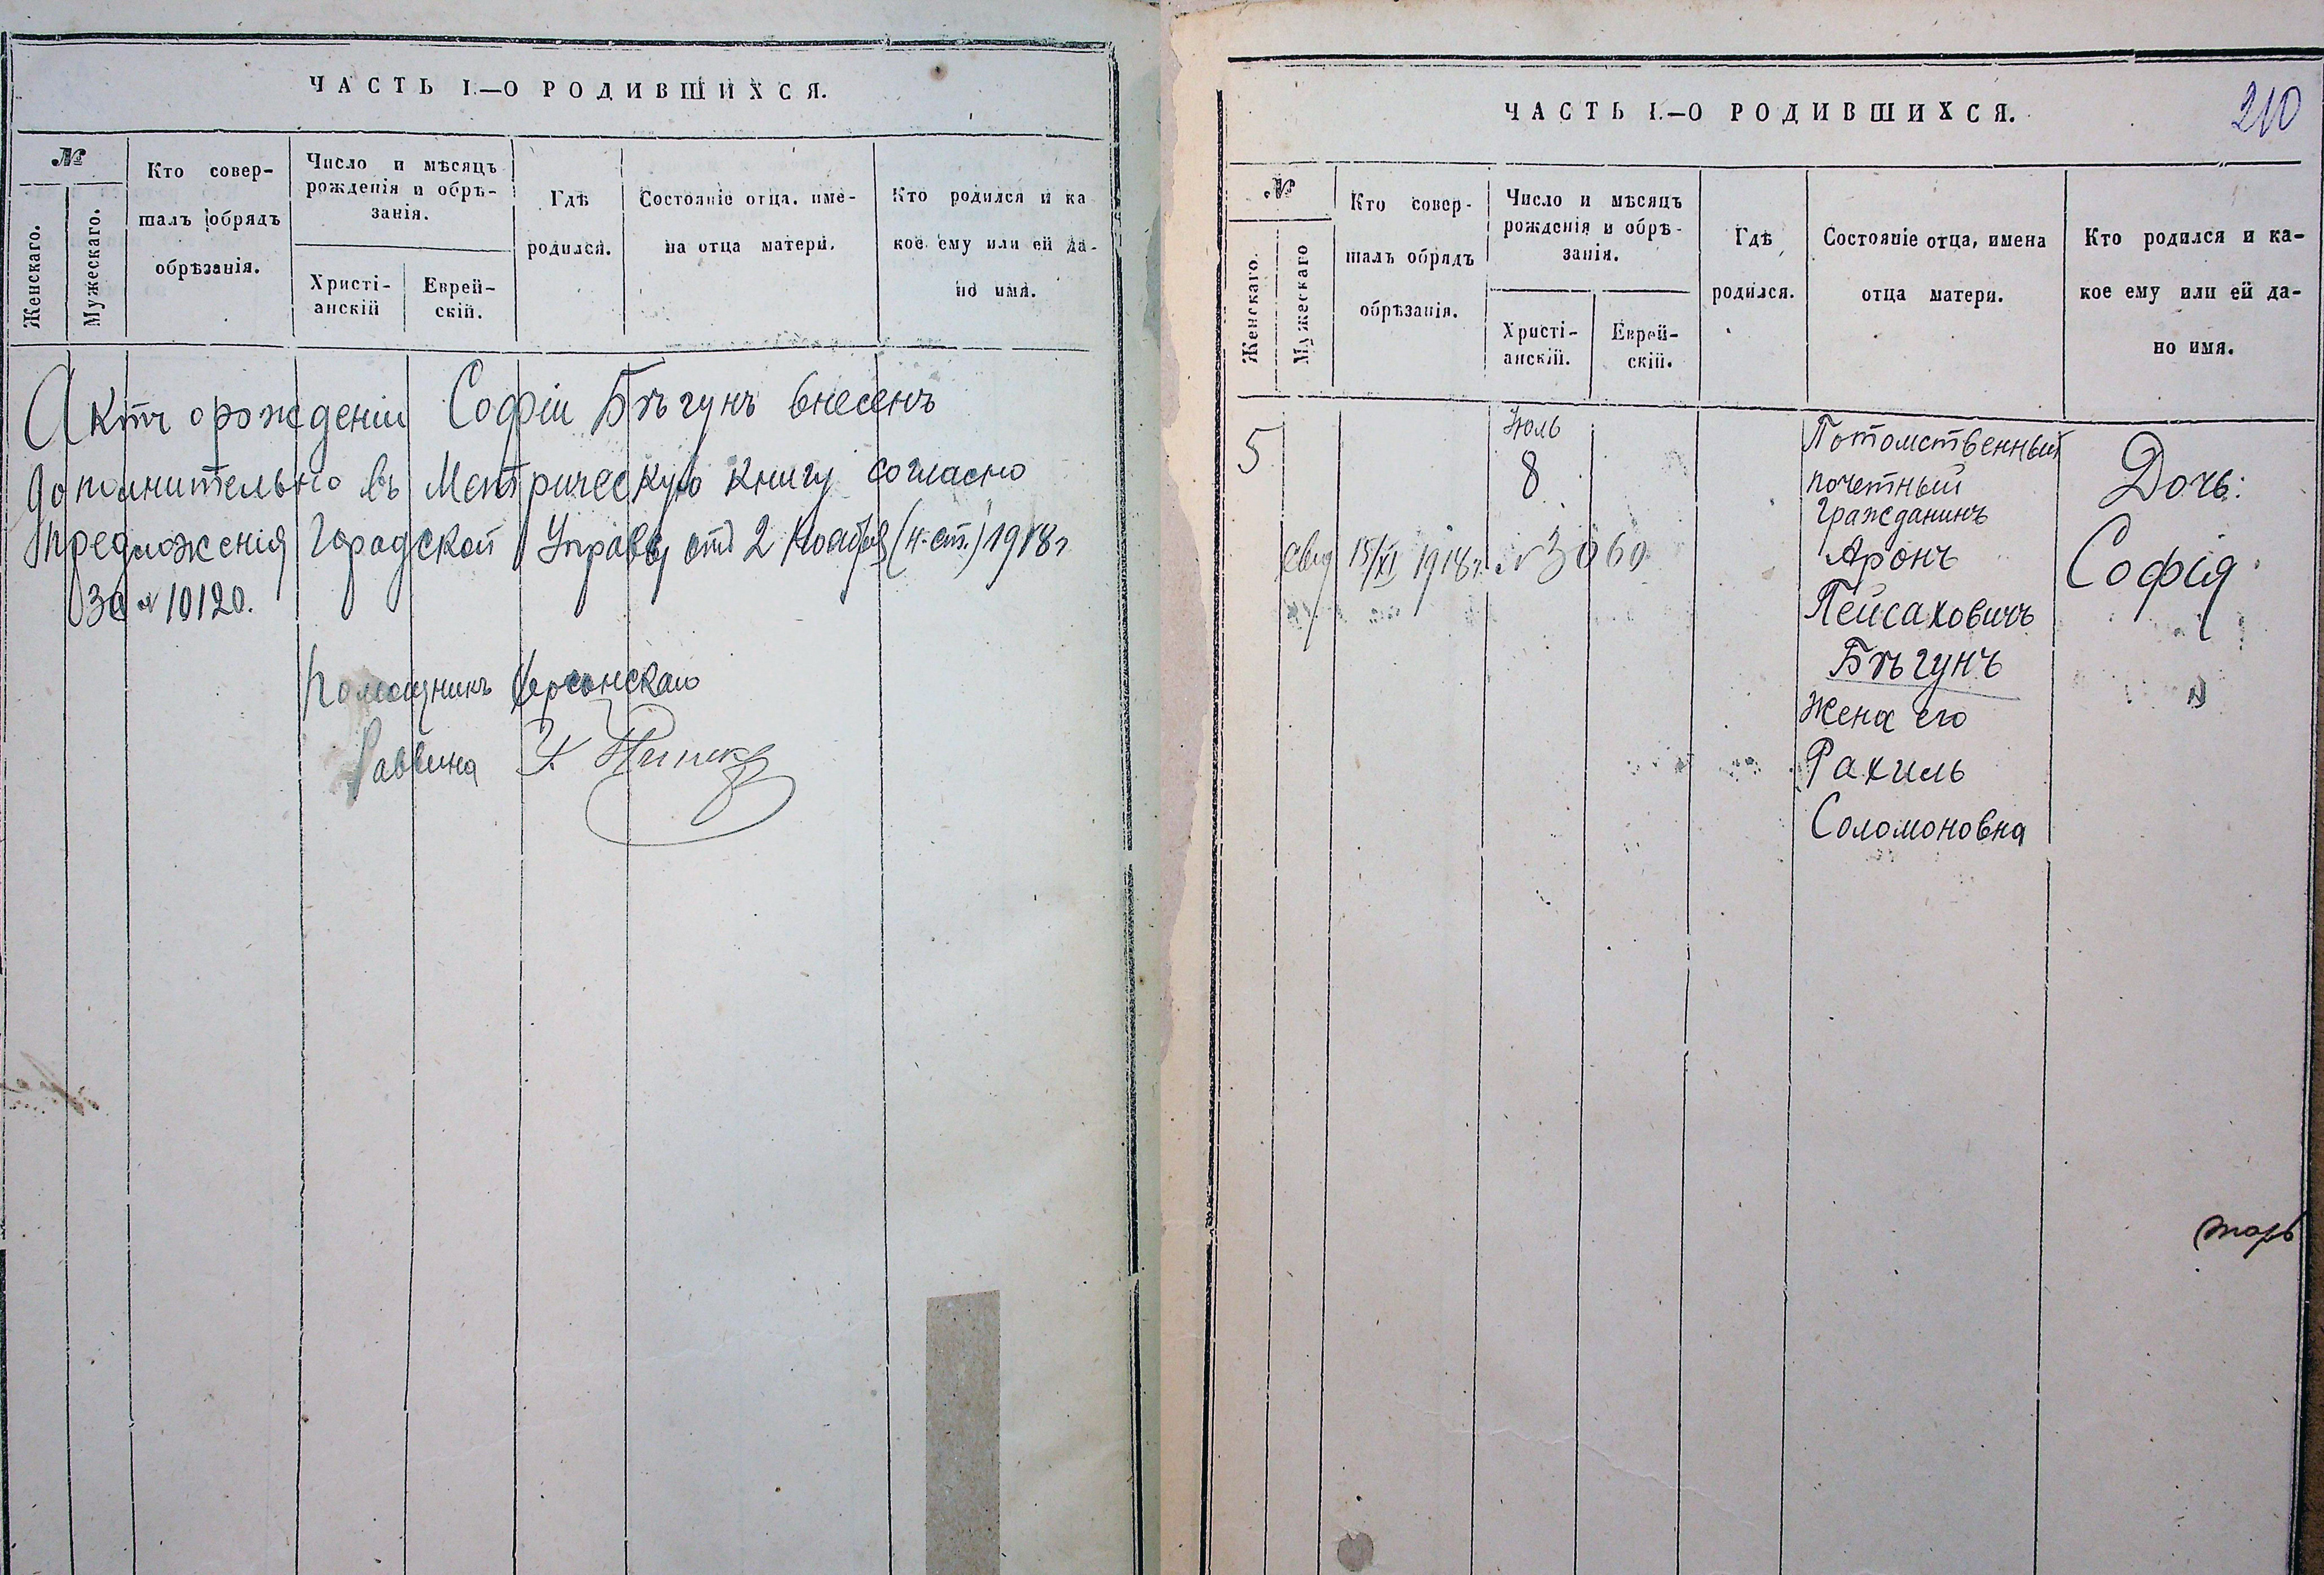 ЧАСТЬ I.—О РОДИВШИХСЯ.
№
Женскаго.
Мужескаго.
Кто совер-
шалъ обрядъ
обрѣзанія.
Число и мѣсяцъ
рожденія и обрѣ-
занія.
Христі-
анскій
Еврей-
скій.
Гдѣ
родился.
Состояніе отца, име-
на отца матери.
Кто родился и ка
кое ему или ей да-
но имя.
Актъ о рожденіи Софіи Бѣгунъ внесенъ
дополнительно въ Метрическую книгу согласно
предложенія Городской Управы отъ 2 Ноября (н. ст.) 1918 г
За № 10120.
Помощникъ Херсонскаго
Раввина
ЧАСТЬ I.—О РОДИВШИХСЯ.
210
№
Женскаго.
Мужескаго
Кто совер-
шалъ обрядъ
обрѣзанія.
Число и мѣсяцъ
рожденія и обрѣ-
занія.
Христі-
анскій.
Еврей-
скій.
Гдѣ
родился.
Состояніе отца, имена
отца матери.
Кто родился и ка-
кое ему или ей да-
но имя.
5
Іюль
8
свид 15/XI 1918 г. № 3060
Потомственный
почетный
Гражданинъ
Аронъ
Пейсаховичъ
Бѣгунъ
Жена его
Рахиль
Соломоновна
Дочь:
Софія